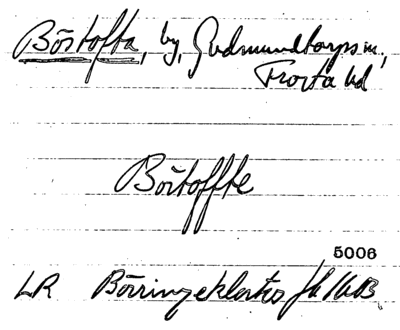 Böstofta, by, Gudmundtorps sn,
Frosta hd
Böstoffte
5006
LR Börringekloster